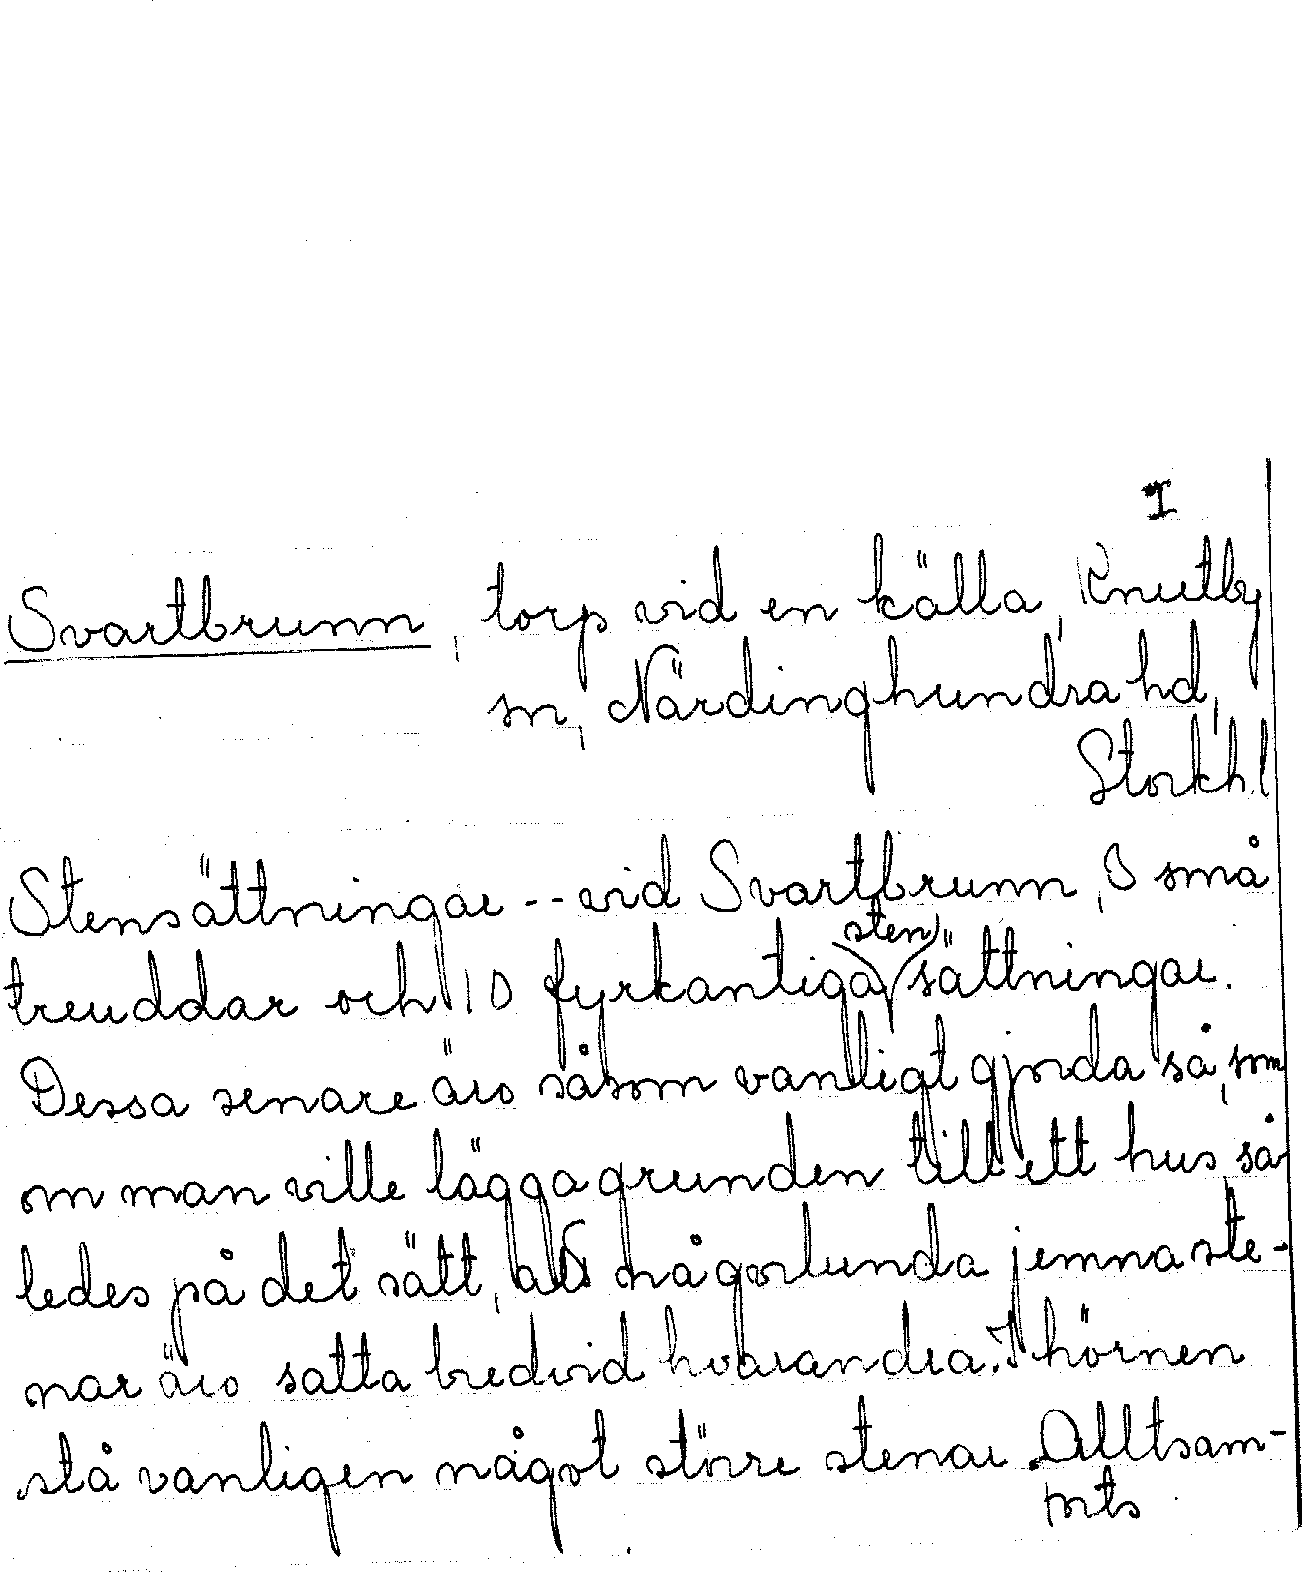 I
Svartbrunn, torp vid en källa, Knutby
sn, Närdinghundra hd,
Storkh l
Stensättningar -- vid Svartbrunn, 3 små
treuddar och 10 fyrkantiga stensättningar.
Dessa senare äro såsom vanligt gjorda så, som
om man ville lägga grunden till ett hus, så
ledes på det sätt, att någorlunda jemna ste-
nar äro satta bredvid hvarandra. I hörnen
stå vanligen något större stenar. Alltsam-